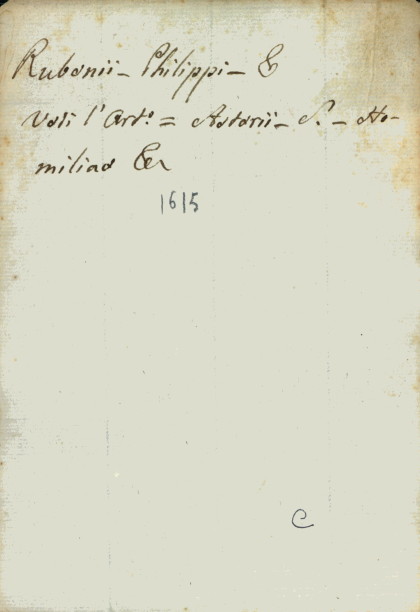 Rubenii - Philippi - &
Vedi l'Art.º = Asterii - S. - Ho-
miliae &c
1615
C